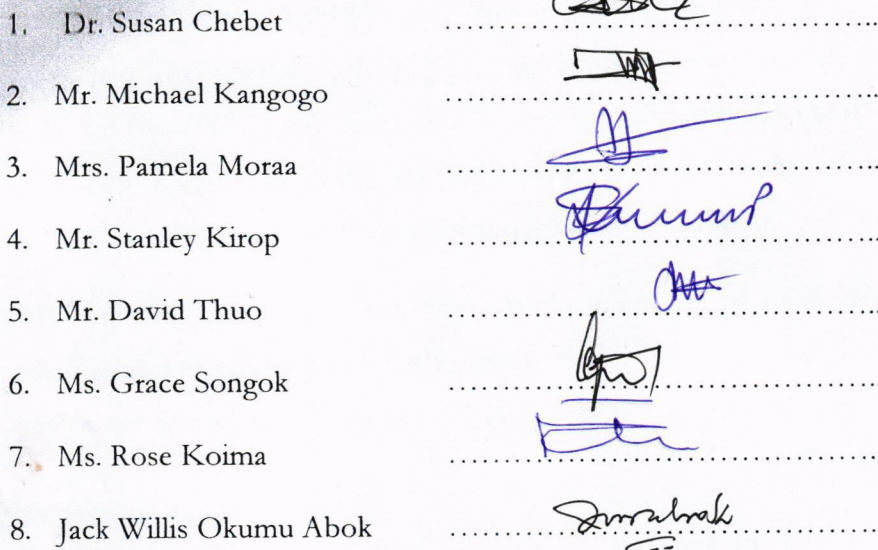 1. Dr. Susan Chebet ................................
2. Mr. Michael Kangogo ................................
3. Mrs. Pamela Moraa ................................
4. Mr. Stanley Kirop ................................
5. Mr. David Thuo ................................
6. Ms. Grace Songok ................................
7. Ms. Rose Koima ................................
8. Jack Willis Okumu Abok ................................